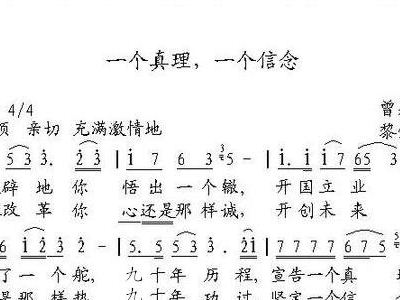 一个真理，一个信念
4/4
亲切 充满激情地
5 3 3. 2 3 | i 7 6 3 5 - | i. i i 7 6 5 3
辟 地 你 悟 出 一 个 辙， 开 国 立 业
改 革 你 心 还 是 那 样 诚， 开 创 未 来
i 2 i 3 | 5. 5 5 3 3. 2 i | 7 7 7 7 6 7 5
了 一 个 舵， 九 十 年 历 程， 宣 告 一 个 真
是 那 样 热 九 十 年 功 过 坚 定 一 个 信